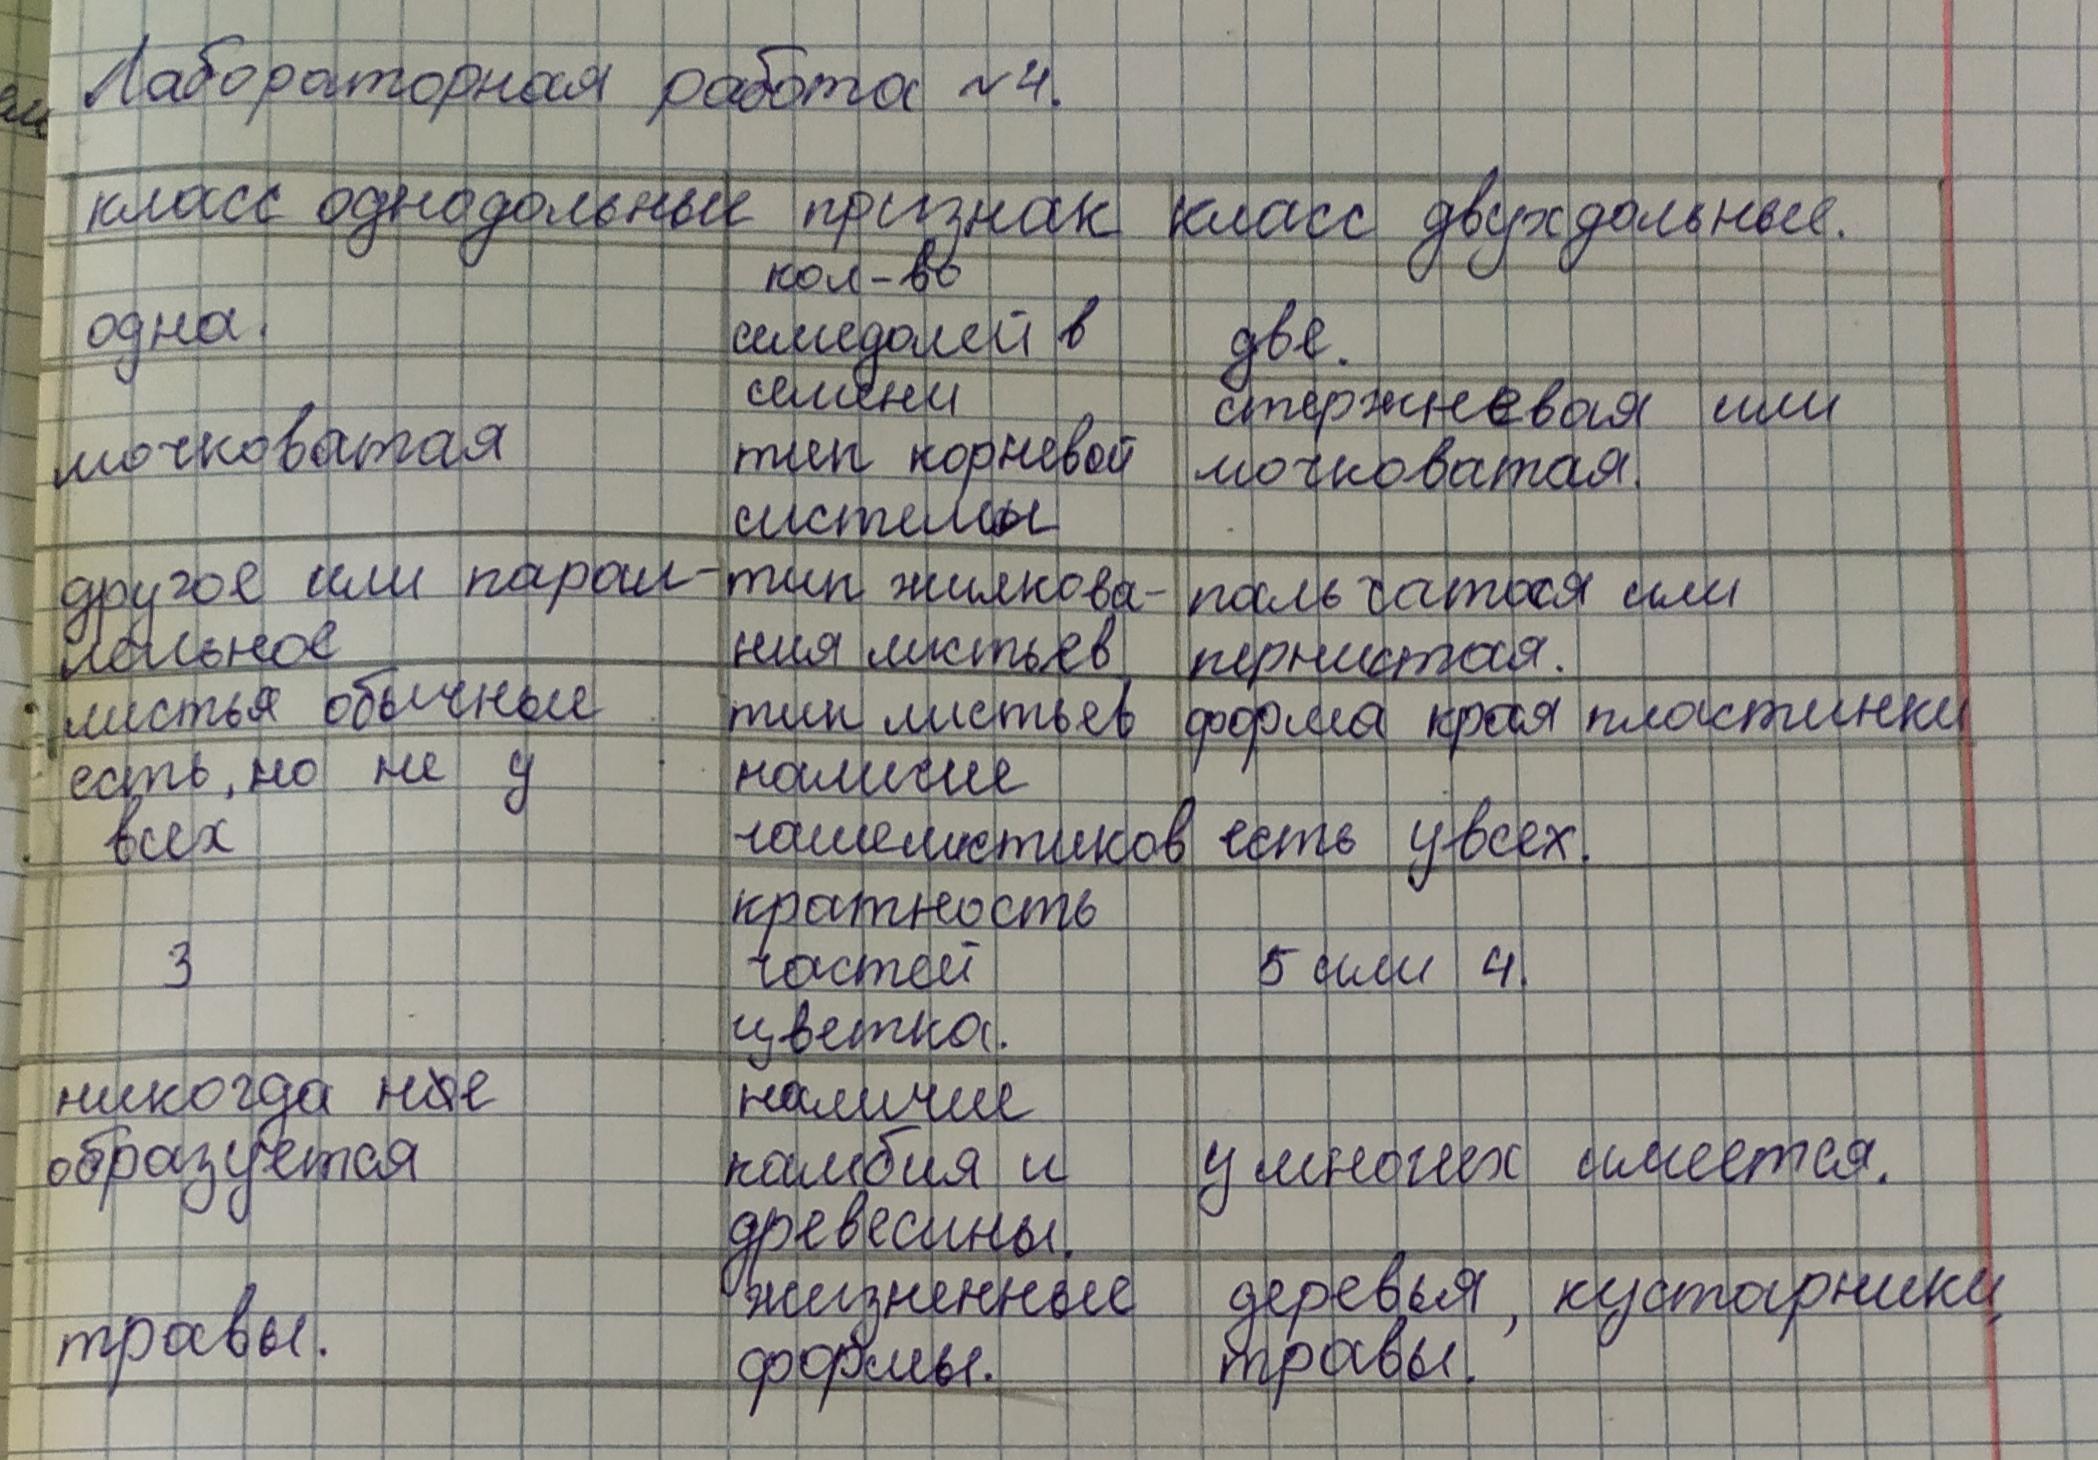 Лабораторная работа №4.
класс однодольные признак класс двухдольные.
кол-во
одна. семедолей в две.
семени стержневая или
мочковатая тип корневой мочковатая.
системы
другое или парал- тип жилкова- пальчатая или
лальное ния листьев пернистая.
листья обычные тип листьев форма края пластинки
есть, но не у наличие
всех чашелистиков есть у всех.
кратность
3 частей 5 или 4.
цветка.
никогда не наличие
образуется камбия и у многих имеется.
древесины.
жизненные деревья, кустарники,
травы. формы. травы.